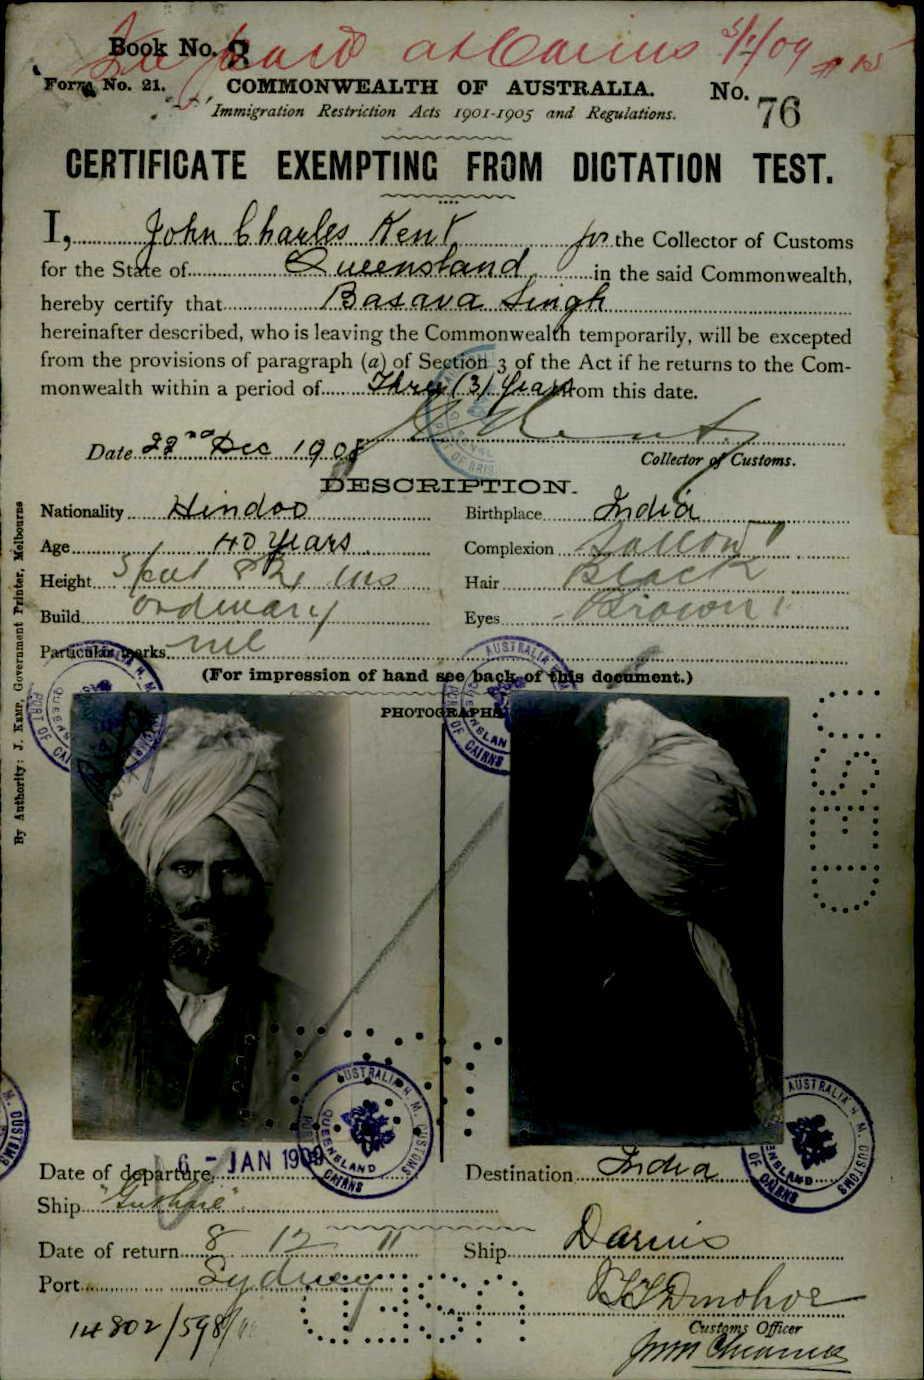 Book No. 8
at Cairns 5/1/09
Form No. 21.
COMMONWEALTH OF AUSTRALIA.
No. 76
Immigration Restriction Acts 1901-1905 and Regulations.
CERTIFICATE EXEMPTING FROM DICTATION TEST.
I, John Charles Kent for the Collector of Customs
for the State of Queensland in the said Commonwealth,
hereby certify that Basava Singh
hereinafter described, who is leaving the Commonwealth temporarily, will be excepted
from the provisions of paragraph (a) of Section 3 of the Act if he returns to the Com-
monwealth within a period of Three (3) Years from this date.
Date 22nd Dec 1908
Collector of Customs.
DESCRIPTION.
Nationality Hindoo
Birthplace India
Age 40 Years
Complexion Sallow
Height 5 feet 8½ ins
Hair Black
Build ordinary
Eyes Brown
Particular marks nil
(For impression of hand see back of this document.)
PHOTOGRAPHS
By Authority: J. Kemp, Government Printer, Melbourne
AUSTRALIA H. M. CUSTOMS
QUEENSLAND
PORT OF CAIRNS
USED
Date of departure 6 - JAN 1909
Destination India
Ship "Guthrie"
Date of return 8 12 11
Ship
Port Sydney
USED
Customs Officer
14802/598